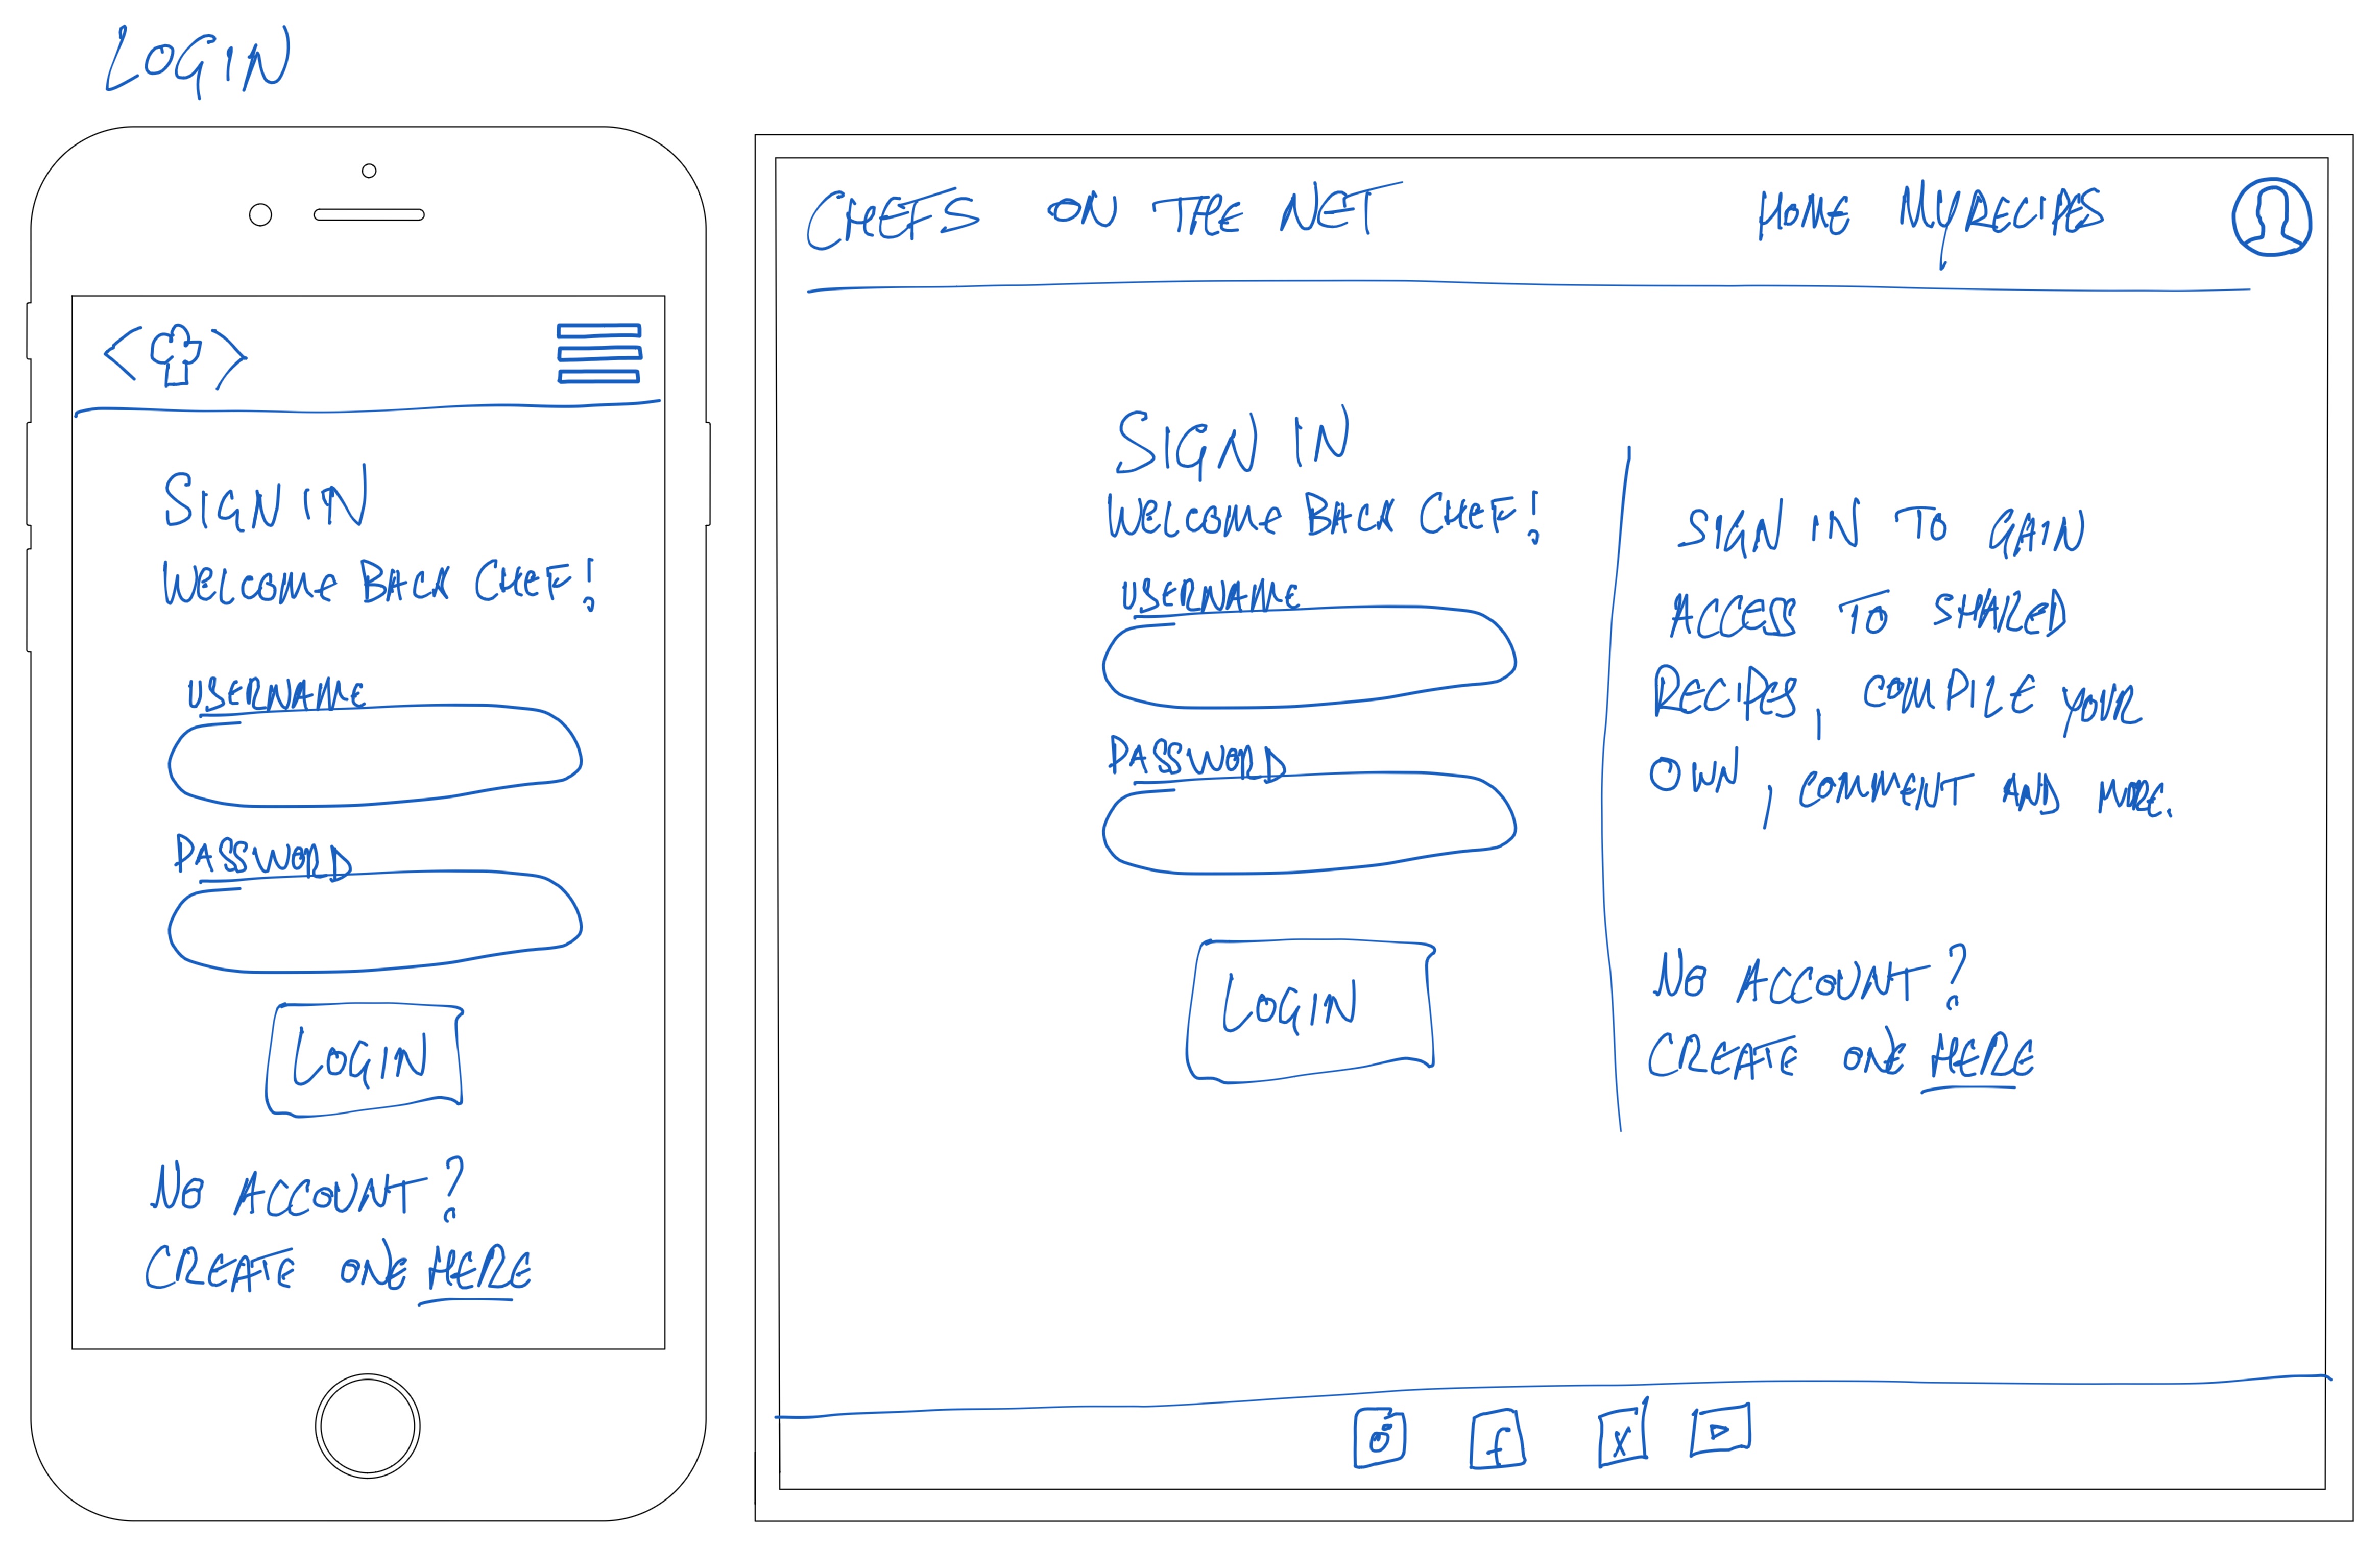 LOGIN
SIGN IN
WELCOME BACK CHEF!
USERNAME
PASSWORD
LOGIN
NO ACCOUNT?
CREATE ONE HERE
CHEFS ON THE NET
HOME MYRECIPES
SIGN IN
WELCOME BACK CHEF!
USERNAME
PASSWORD
LOGIN
SIGN IN TO GAIN
ACCESS TO SHARED
RECIPES, COMPILE YOUR
OWN, COMMENT AND MORE.
NO ACCOUNT?
CREATE ONE HERE
f X